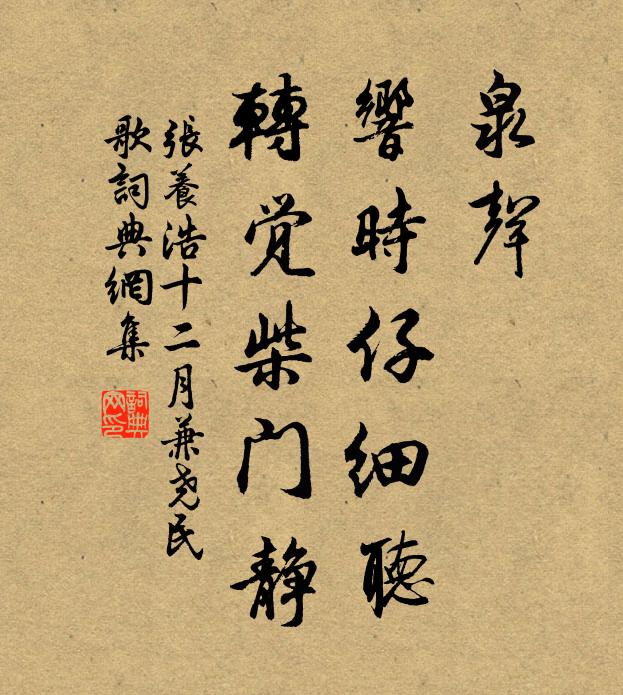 泉聲
響時仔细聽
轉觉柴门静
張養浩十二月兼尧民
歌詞典網集
詞典
网印